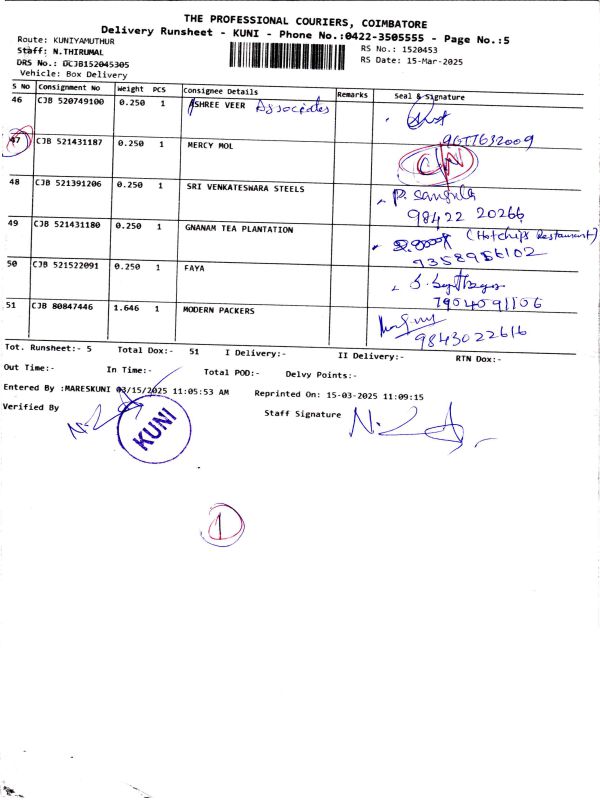 THE PROFESSIONAL COURIERS, COIMBATORE
Delivery Runsheet - KUNI - Phone No.:0422-3505555 - Page No.:5
Route: KUNIYAMUTHUR
RS No.: 1520453
Staff: N.THIRUMAL
RS Date: 15-Mar-2025
DRS No.: DCJB152045305
Vehicle: Box Delivery
S No Consignment No Weight PCS Consignee Details Remarks Seal & Signature
46 CJB 520749100 0.250 1 ASHREE VEER Associates
47 CJB 521431187 0.250 1 MERCY MOL
48 CJB 521391206 0.250 1 SRI VENKATESWARA STEELS P. Sangula
98422 20266
49 CJB 521431180 0.250 1 GNANAM TEA PLANTATION (Hotchips Restaurant)
9358956102
50 CJB 521522091 0.250 1 FAYA
7904091106
51 CJB 80847446 1.646 1 MODERN PACKERS
9843022616
Tot. Runsheet:- 5 Total Dox:- 51 I Delivery:- II Delivery:- RTN Dox:-
Out Time:- In Time:- Total POD:- Delvy Points:-
Entered By :MARESKUNI 03/15/2025 11:05:53 AM Reprinted On: 15-03-2025 11:09:15
Verified By Staff Signature
KUNI
1